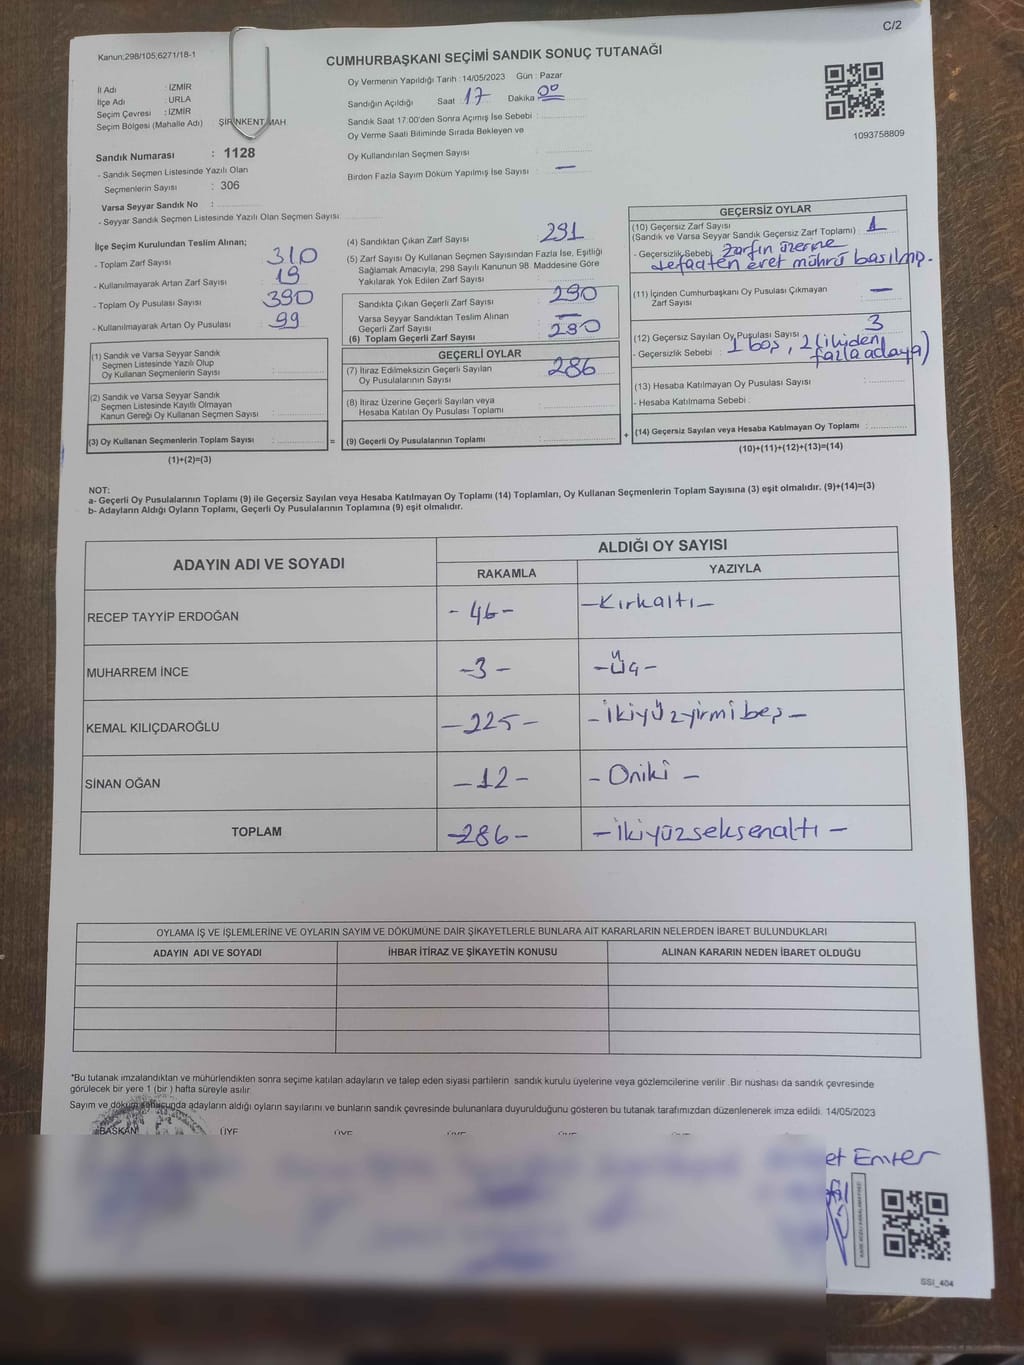 C/2
Kanun:298/105;6271/18-1
CUMHURBAŞKANI SEÇİMİ SANDIK SONUÇ TUTANAĞI
İl Adı : İZMİR
İlçe Adı : URLA
Seçim Çevresi : İZMİR
Seçim Bölgesi (Mahalle Adı) MAH.
Sandık Numarası : 1128
- Sandık Seçmen Listesinde Yazılı Olan
Seçmenlerin Sayısı : 306
Varsa Seyyar Sandık No :
- Seyyar Sandık Seçmen Listesinde Yazılı Olan Seçmen Sayısı
Oy Vermenin Yapıldığı Tarih : 14/05/2023 Gün : Pazar
Sandığın Açıldığı Saat : 17 Dakika : 00
Sandık Saat 17.00'den Sonra Açımış İse Sebebi :
Oy Verme Saati Bitiminde Sırada Bekleyen ve
Oy Kullandırılan Seçmen Sayısı
Birden Fazla Sayım Döküm Yapılmış İse Sayısı : —
1093758809
İlçe Seçim Kurulundan Teslim Alınan;
- Toplam Zarf Sayısı : 310
- Kullanılmayarak Artan Zarf Sayısı : 19
- Toplam Oy Pusulası Sayısı : 390
- Kullanılmayarak Artan Oy Pusulası : 99
(1) Sandık ve Varsa Seyyar Sandık
Seçmen Listesinde Yazılı Olup
Oy Kullanan Seçmenlerin Sayısı :
(2) Sandık ve Varsa Seyyar Sandık
Seçmen Listesinde Kayıtlı Olmayan
Kanun Gereği Oy Kullanan Seçmen Sayısı :
(3) Oy Kullanan Seçmenlerin Toplam Sayısı : =
(1)+(2)=(3)
(4) Sandıktan Çıkan Zarf Sayısı : 291
(5) Zarf Sayısı Oy Kullanan Seçmen Sayısından Fazla İse, Eşitliği
Sağlamak Amacıyla, 298 Sayılı Kanunun 98. Maddesine Göre
Yakılarak Yok Edilen Zarf Sayısı :
Sandıkta Çıkan Geçerli Zarf Sayısı : 290
Varsa Seyyar Sandıktan Teslim Alınan
Geçerli Zarf Sayısı : —
(6) Toplam Geçerli Zarf Sayısı : 290
GEÇERLİ OYLAR
(7) İtiraz Edilmeksizin Geçerli Sayılan
Oy Pusulalarının Sayısı : 286
(8) İtiraz Üzerine Geçerli Sayılan veya
Hesaba Katılan Oy Pusulası Toplamı :
(9) Geçerli Oy Pusulalarının Toplamı : +
GEÇERSİZ OYLAR
(10) Geçersiz Zarf Sayısı
(Sandık ve Varsa Seyyar Sandık Geçersiz Zarf Toplamı) : 1
- Geçersizlik Sebebi : Zarfın üzerine
defaaten evet mührü basılmış.
(11) İçinden Cumhurbaşkanı Oy Pusulası Çıkmayan
Zarf Sayısı : —
(12) Geçersiz Sayılan Oy Pusulası Sayısı : 3
- Geçersizlik Sebebi : 1 boş, 2 (ikiden
fazla adaya)
(13) Hesaba Katılmayan Oy Pusulası Sayısı :
- Hesaba Katılmama Sebebi :
(14) Geçersiz Sayılan veya Hesaba Katılmayan Oy Toplamı :
(10)+(11)+(12)+(13)=(14)
NOT:
a- Geçerli Oy Pusulalarının Toplamı (9) ile Geçersiz Sayılan veya Hesaba Katılmayan Oy Toplamı (14) Toplamları, Oy Kullanan Seçmenlerin Toplam Sayısına (3) eşit olmalıdır. (9)+(14)=(3)
b- Adayların Aldığı Oyların Toplamı, Geçerli Oy Pusulalarının Toplamına (9) eşit olmalıdır.
ADAYIN ADI VE SOYADI ALDIĞI OY SAYISI
RAKAMLA YAZIYLA
RECEP TAYYİP ERDOĞAN - 46 - - Kırkaltı -
MUHARREM İNCE - 3 - - Üç -
KEMAL KILIÇDAROĞLU - 225 - - İkiyüzyirmibeş -
SİNAN OĞAN - 12 - - Oniki -
TOPLAM - 286 - - İkiyüzseksenaltı -
OYLAMA İŞ VE İŞLEMLERİNE VE OYLARIN SAYIM VE DÖKÜMÜNE DAİR ŞİKAYETLERLE BUNLARA AİT KARARLARIN NELERDEN İBARET BULUNDUKLARI
ADAYIN ADI VE SOYADI İHBAR İTİRAZ VE ŞİKAYETİN KONUSU ALINAN KARARIN NEDEN İBARET OLDUĞU
*Bu tutanak imzalandıktan ve mühürlendikten sonra seçime katılan adayların ve talep eden siyasi partilerin sandık kurulu üyelerine veya gözlemcilerine verilir .Bir nüshası da sandık çevresinde
görülecek bir yere 1 (bir ) hafta süreyle asılır.
Sayım ve döküm sonucunda adayların aldığı oyların sayılarını ve bunların sandık çevresinde bulunanlara duyurulduğunu gösteren bu tutanak tarafımızdan düzenlenerek imza edildi. 14/05/2023
BAŞKAN ÜYE ÜYE ÜYE ÜYE ÜYE
SSI_404